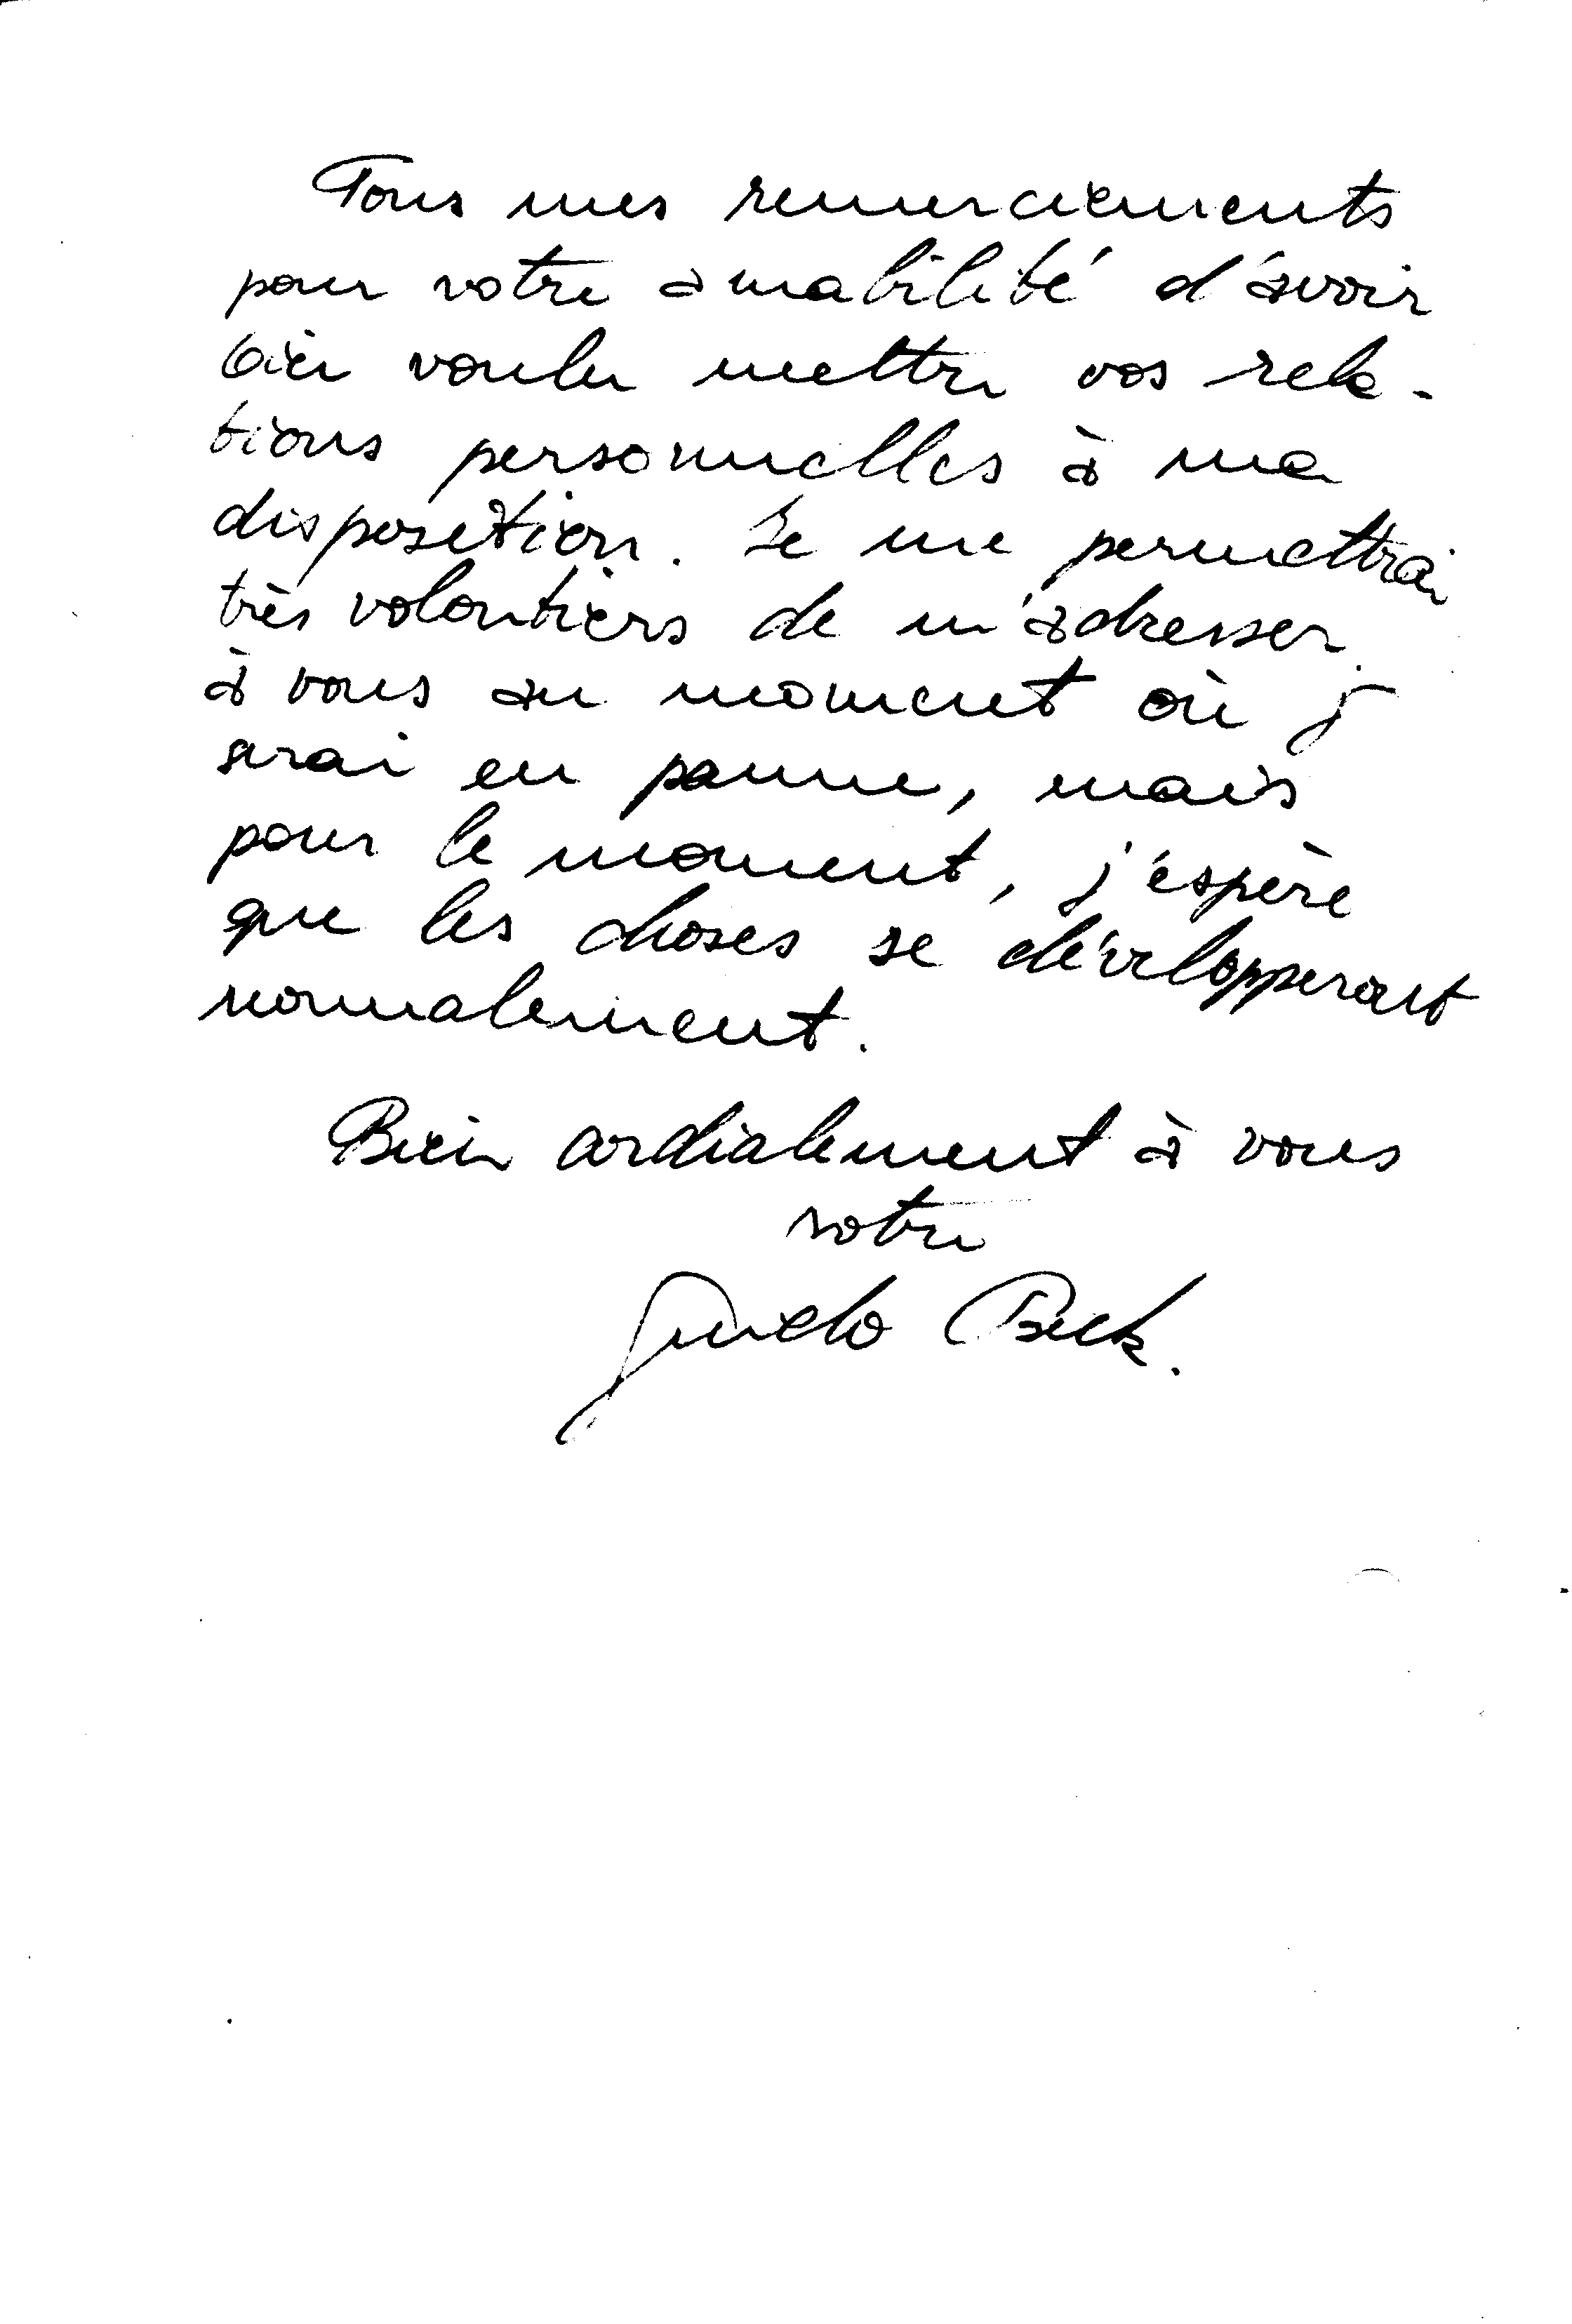 Tous mes remerciements
pour votre amabilité d'avoir
bien voulu mettre vos rela-
tions personnelles à ma
disposition. Je me permettrai
très volontiers de m'adresser
à vous au moment où j
serai en panne, mais
pour le moment, j'éspère
que les choses se développeront
normalement.
Bien cordialement à vous
votre
Guido Beck.